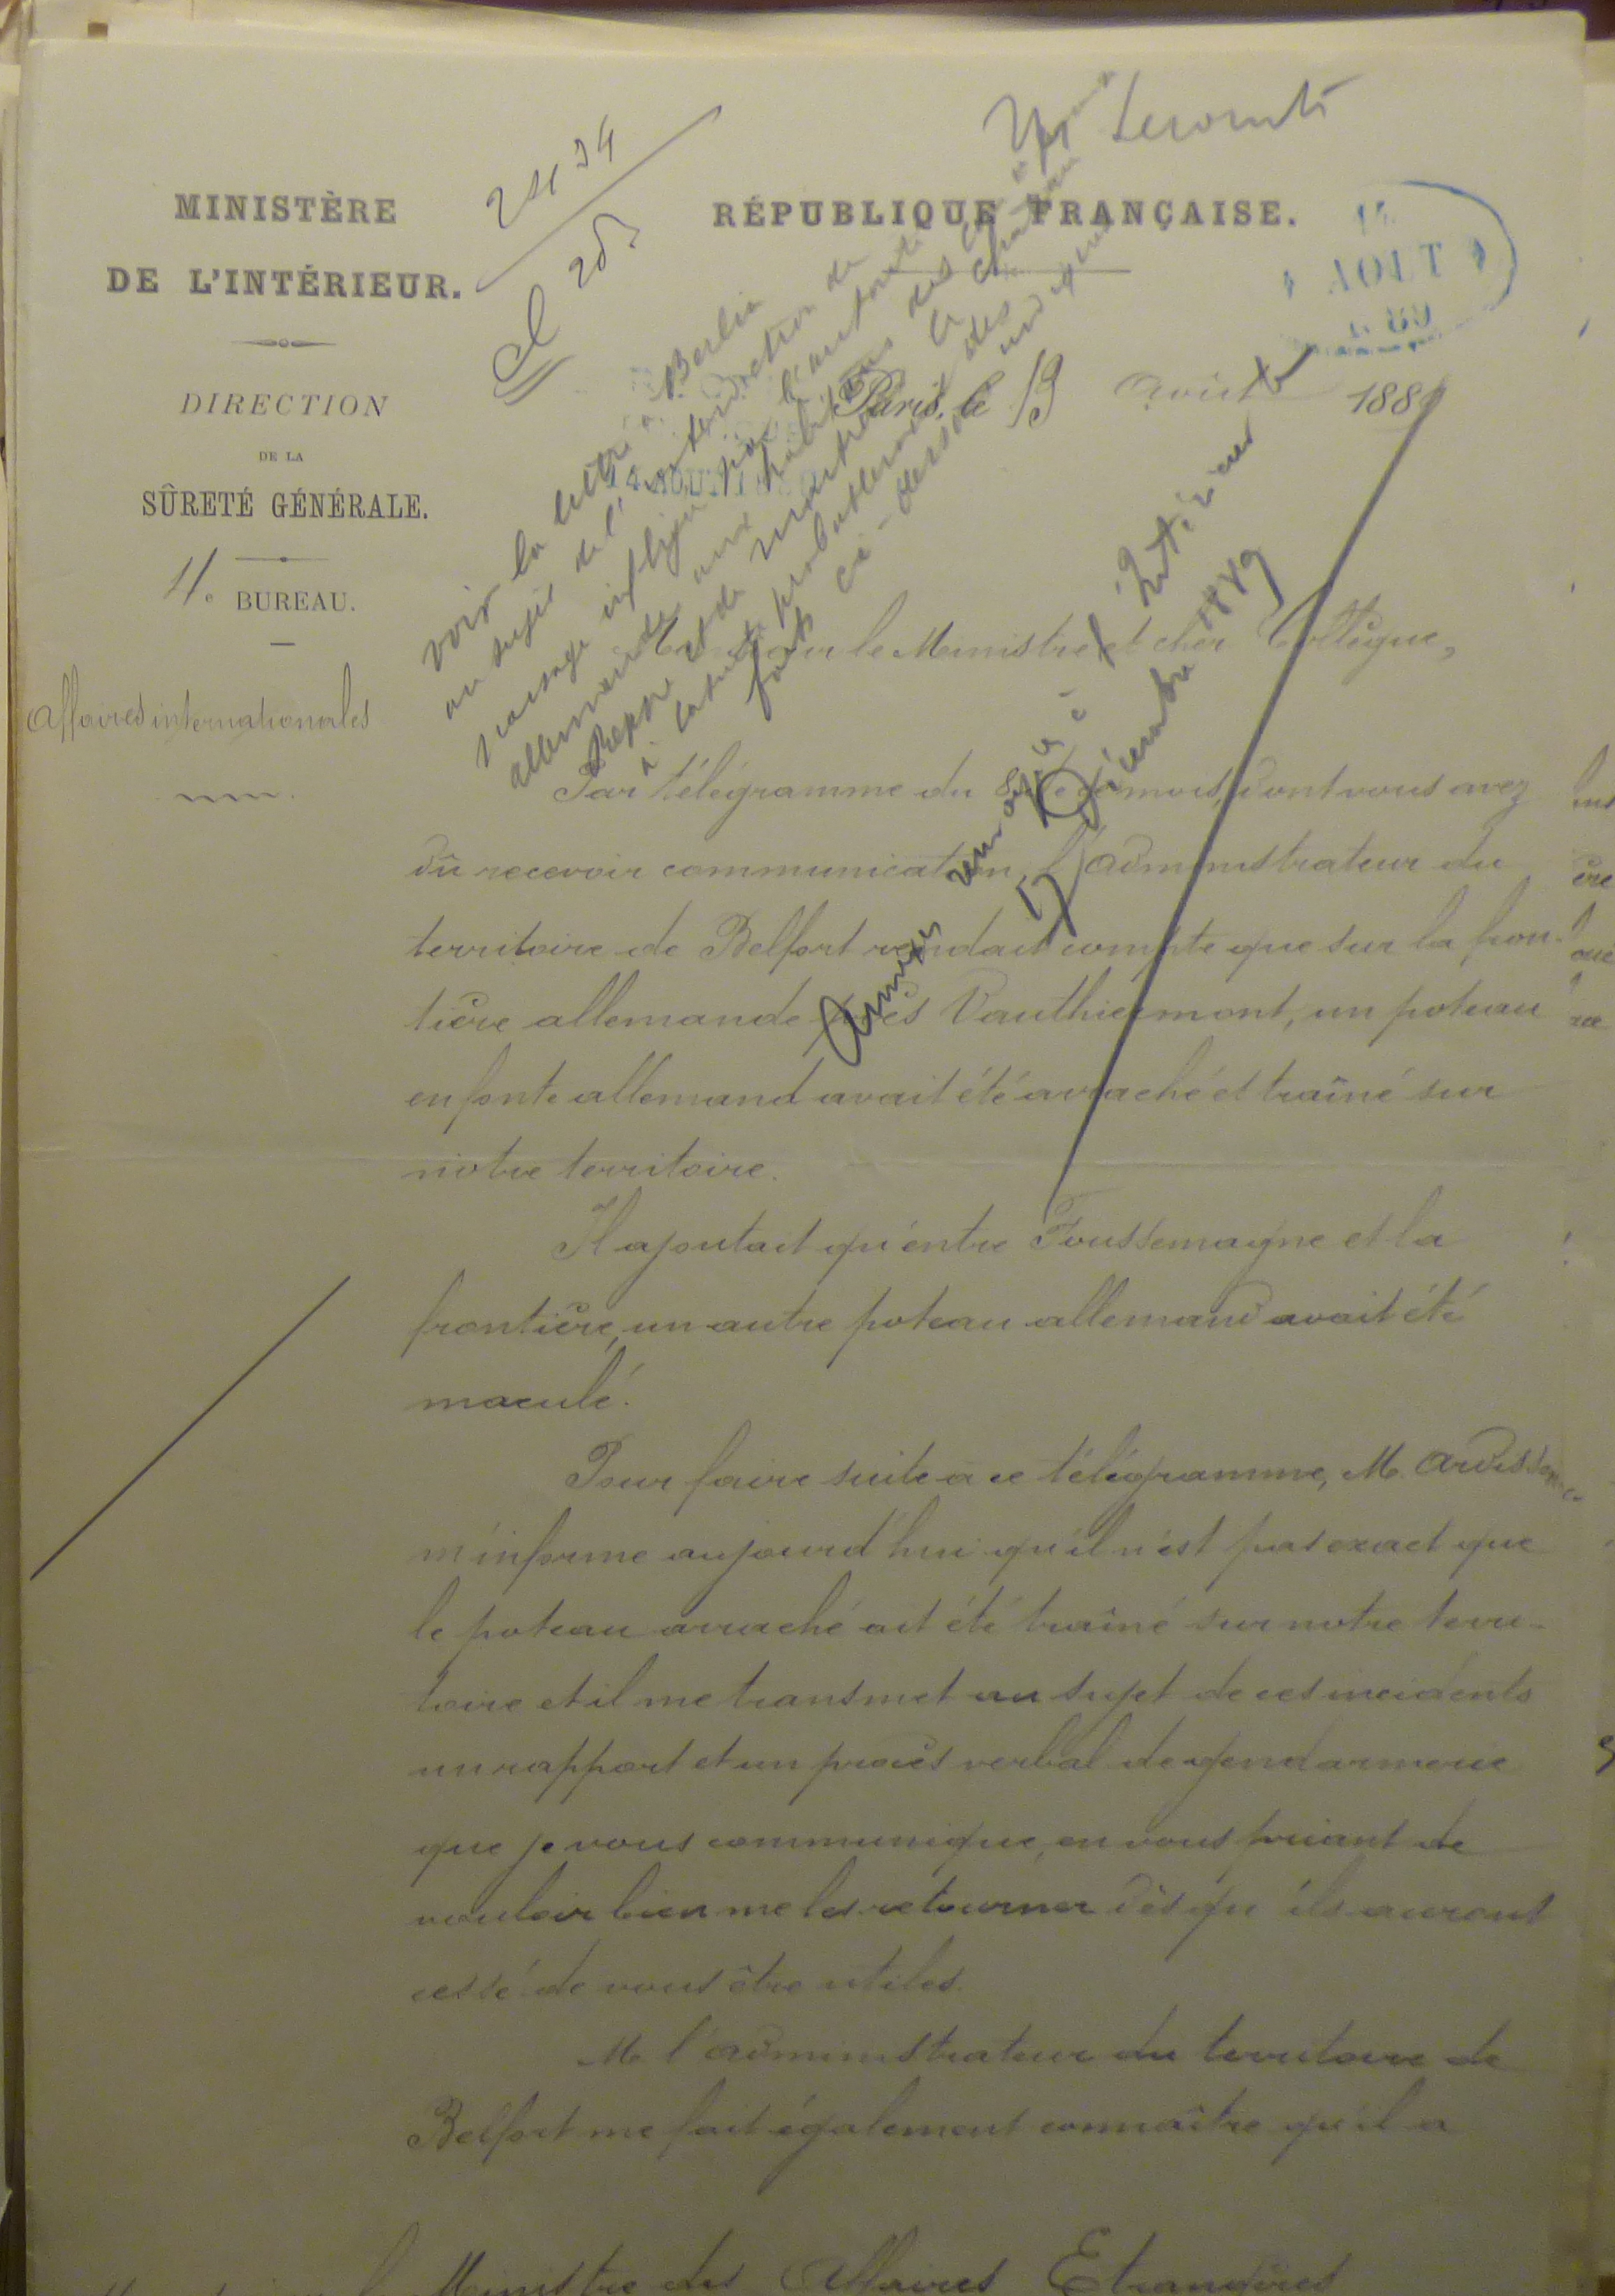 Lecomte
2434
MINISTÈRE
DE L'INTÉRIEUR.
DIRECTION
DE LA
SÛRETÉ GÉNÉRALE.
4e BUREAU.
Affaires internationales
RÉPUBLIQUE FRANÇAISE.
Paris, le 13 Août 1889
voir la lettre à Berlin
au sujet de l'interdiction de
passage infligée par l'autorité
allemande aux habitants des
Repas et de
à la suite probablement des
faits ci-dessous
Annexes renvoyées à l'Intérieur
17 Décembre 1889
Monsieur le Ministre et cher Collègue,
Par télégramme du 8 de ce mois, dont vous avez
dû recevoir communication, l'administrateur du
territoire de Belfort rendait compte que sur la fron-
tière allemande près Vauthiermont, un poteau
en fonte allemand avait été arraché et traîné sur
notre territoire.
Il ajoutait qu'entre Foussemagne et la
frontière, un autre poteau allemand avait été
maculé.
Pour faire suite à ce télégramme, M. Ardisson
m'informe aujourd'hui qu'il n'est pas exact que
le poteau arraché ait été traîné sur notre terri-
toire et il me transmet au sujet de ces incidents
un rapport et un procès verbal de gendarmerie
que je vous communique, en vous priant de
vouloir bien me les retourner dès qu'ils auront
cessé de vous être utiles.
M. l'administrateur du territoire de
Belfort me fait également connaître qu'il a
Ministre des Affaires Etrangères